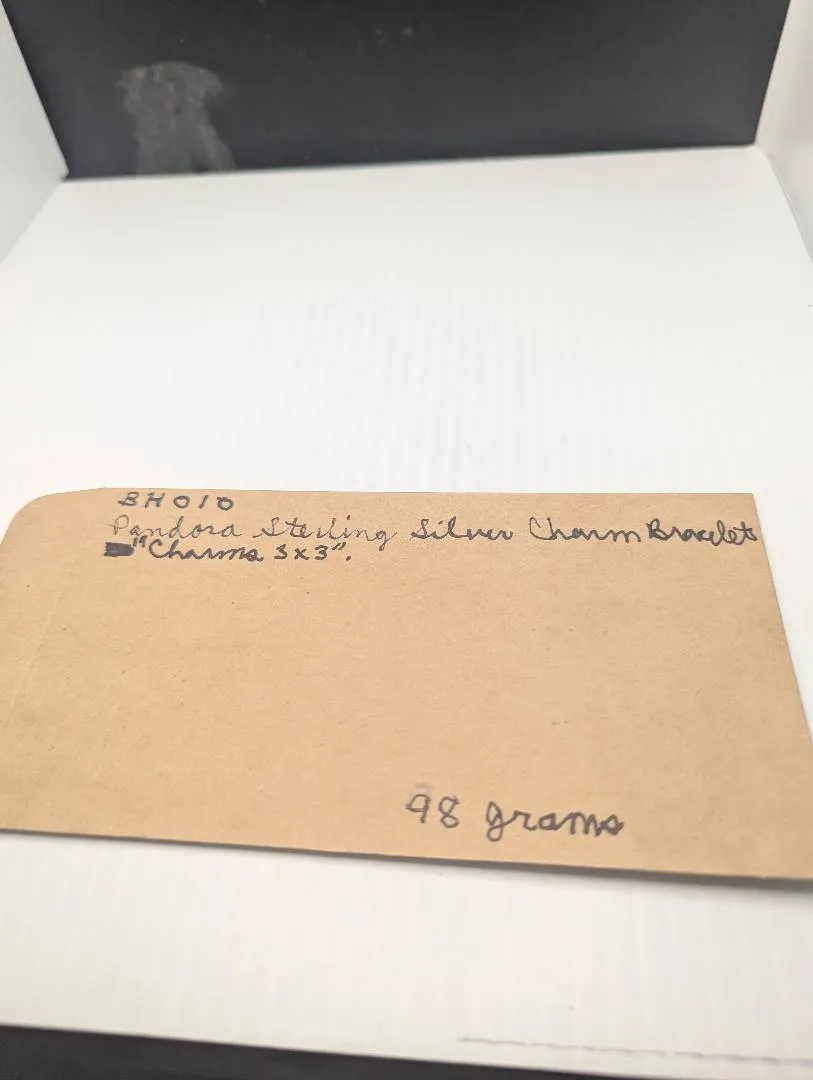 BH010
Pandora Sterling Silver Charm Bracelet
19 Charms 3x3".
98 grams